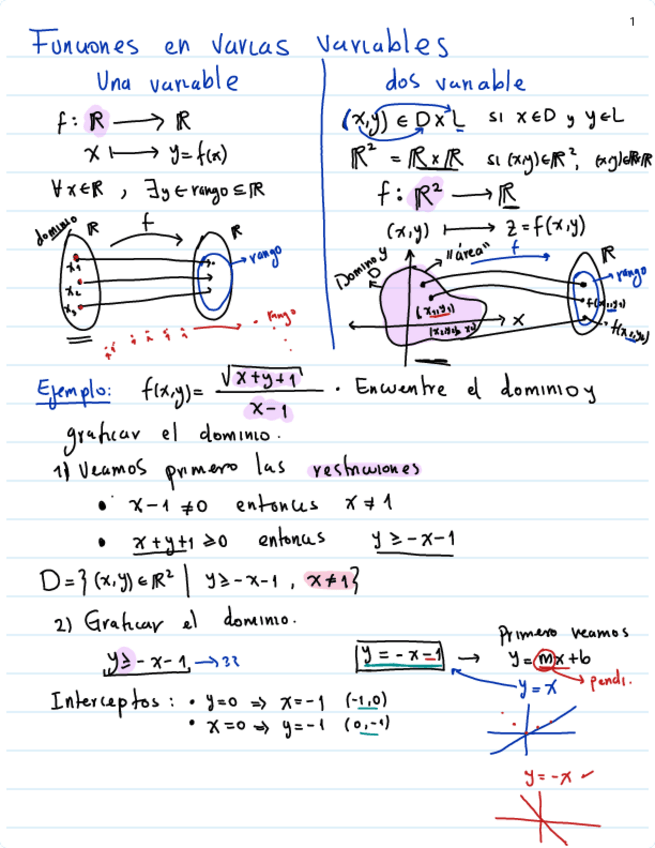 1
Funciones en varias variables
Una variable
f: ℝ → ℝ
x ↦ y=f(x)
∀x∈ℝ , ∃y∈rango⊆ℝ
dominio ℝ f ℝ
rango
x₁
x₂
x₃
rango
dos variable
(x,y) ∈ D×L si x∈D y y∈L
ℝ² = ℝ×ℝ si (x,y)∈ℝ², (x,y)∈ℝ×ℝ
f: ℝ² → ℝ
(x,y) ↦ z=f(x,y)
Dominio D y "área" f ℝ
rango
(x₁,y₁) f(x₁,y₁)
x
Ejemplo: f(x,y)= √(x+y+1) / (x-1) . Encuentre el dominio y
graficar el dominio.
1) Veamos primero las restricciones
• x-1 ≠0 entonces x≠1
• x+y+1 ≥0 entonces y≥-x-1
D={(x,y)∈ℝ² | y≥-x-1 , x≠1}
2) Graficar el dominio.
y≥-x-1 → ??
y=-x-1 →
Primero veamos
y=mx+b
pendi.
y=x
Interceptos: • y=0 ⇒ x=-1 (-1,0)
• x=0 ⇒ y=-1 (0,-1)
y=-x ✓